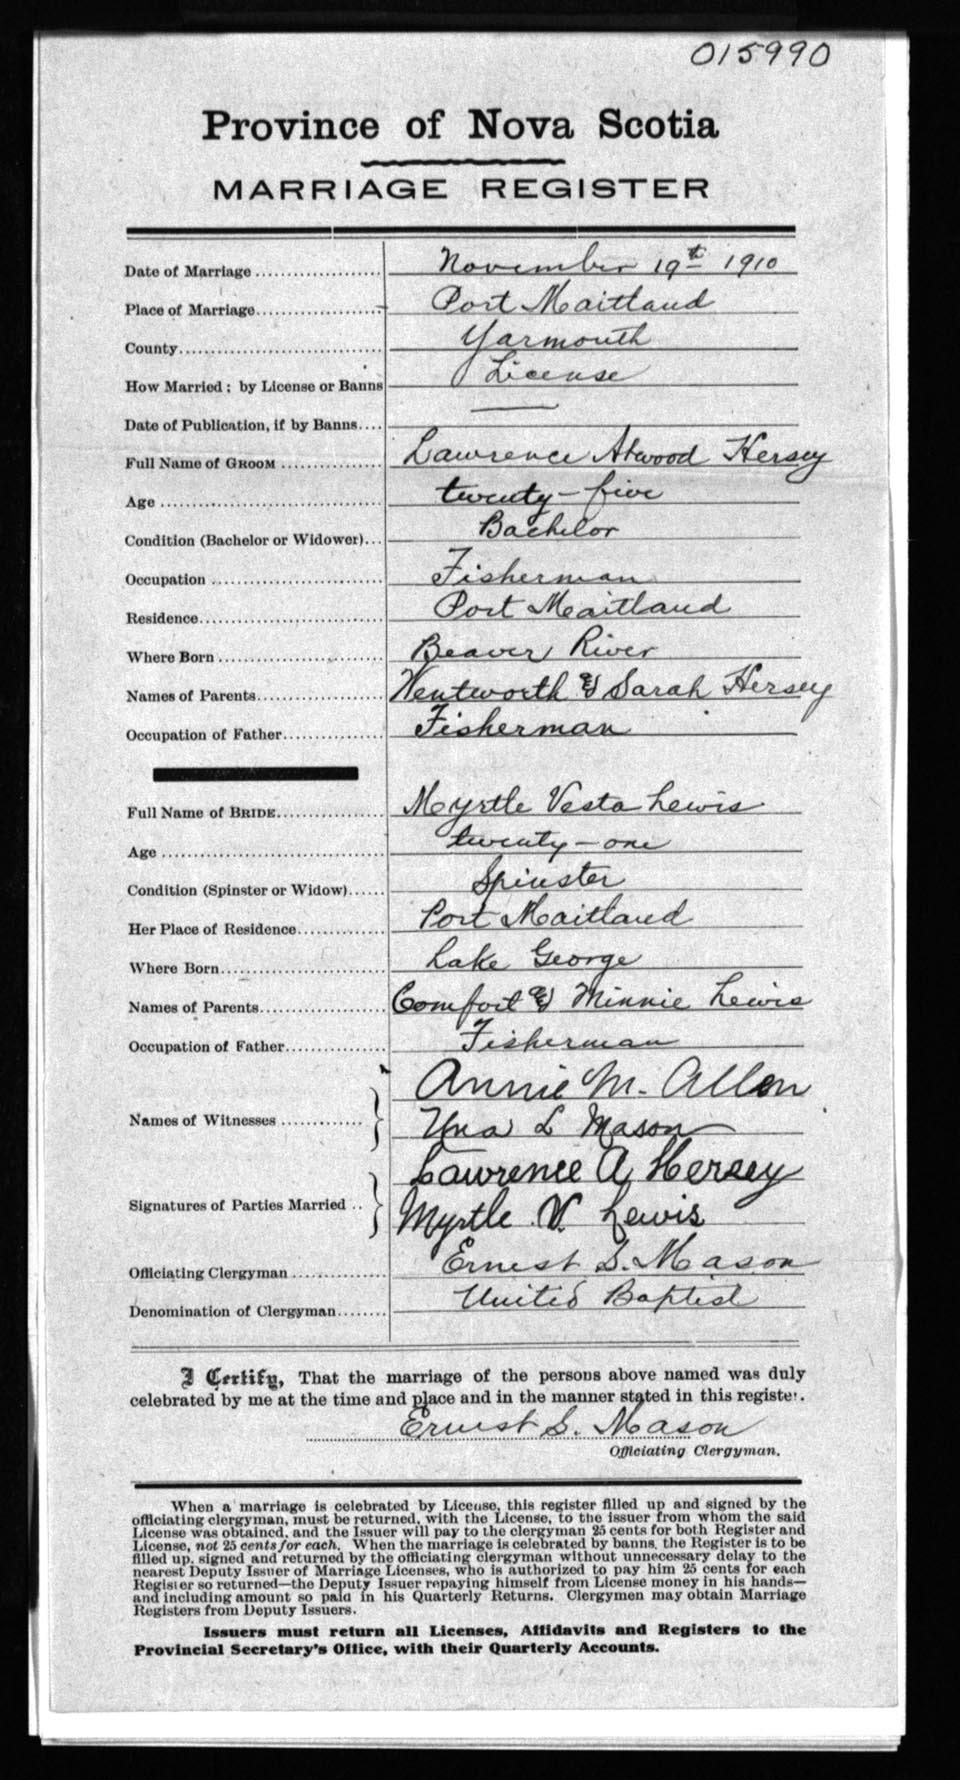 015990
Province of Nova Scotia
MARRIAGE REGISTER
Date of Marriage .................... November 19th 1910
Place of Marriage.................... Port Maitland
County................................ Yarmouth
How Married ; by License or Banns License
Date of Publication, if by Banns.... ——
Full Name of GROOM ................ Lawrence Atwood Hersey
Age ................................... twenty-five
Condition (Bachelor or Widower)... Bachelor
Occupation ........................... Fisherman
Residence............................. Port Maitland
Where Born .......................... Beaver River
Names of Parents.................... Wentworth & Sarah Hersey
Occupation of Father................ Fisherman
Full Name of BRIDE................. Myrtle Vesta Lewis
Age ................................... twenty-one
Condition (Spinster or Widow)...... Spinster
Her Place of Residence.............. Port Maitland
Where Born.......................... Lake George
Names of Parents.................... Comfort & Minnie Lewis
Occupation of Father................ Fisherman
Annie M. Allen
Names of Witnesses .............
Una L Mason
Lawrence A Hersey
Signatures of Parties Married ..
Myrtle V. Lewis
Officiating Clergyman ............... Ernest S. Mason
Denomination of Clergyman........ United Baptist
I Certify, That the marriage of the persons above named was duly
celebrated by me at the time and place and in the manner stated in this register.
Ernest S. Mason
Officiating Clergyman.
When a marriage is celebrated by License, this register filled up and signed by the
officiating clergyman, must be returned, with the License, to the issuer from whom the said
License was obtained, and the Issuer will pay to the clergyman 25 cents for both Register and
License, not 25 cents for each. When the marriage is celebrated by banns, the Register is to be
filled up, signed and returned by the officiating clergyman without unnecessary delay to the
nearest Deputy Issuer of Marriage Licenses, who is authorized to pay him 25 cents for each
Register so returned—the Deputy Issuer repaying himself from License money in his hands—
and including amount so paid in his Quarterly Returns. Clergymen may obtain Marriage
Registers from Deputy Issuers.
Issuers must return all Licenses, Affidavits and Registers to the
Provincial Secretary's Office, with their Quarterly Accounts.